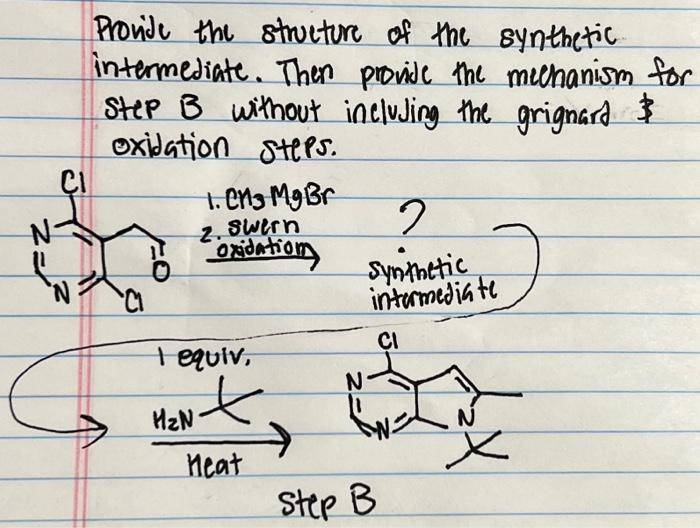 Provide the structure of the synthetic
intermediate. Then provide the mechanism for
step B without including the grignard &
oxidation steps.
Cl
N
N
Cl
O
1. CH3MgBr
2. swern
oxidation
?
synthetic
intermediate
1 equiv.
H2N
Heat
Cl
N
N
N
Step B